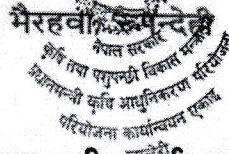 भैरहवा, रूपन्देही
नेपाल सरकार
कृषि तथा पशुपन्छी विकास मन्त्रालय
प्रधानमन्त्री कृषि आधुनिकीकरण परियोजना
परियोजना कार्यान्वयन एकाइ